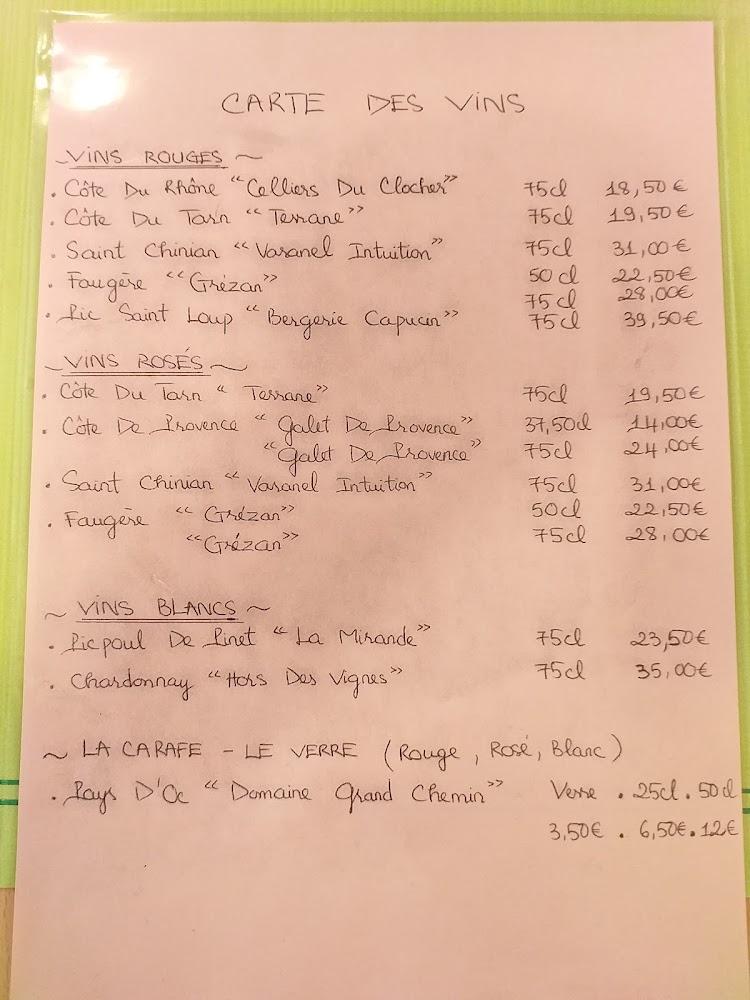 CARTE DES VINS
~ VINS ROUGES ~
. Côte Du Rhône "Celliers Du Clocher" 75cl 18,50€
. Côte Du Tarn "Terrane" 75cl 19,50€
. Saint Chinian "Varanel Intuition" 75cl 31,00€
. Faugère "Grézan" 50cl 22,50€
75cl 28,00€
. Pic Saint Loup "Bergerie Capucin" 75cl 39,50€
~ VINS ROSÉS ~
. Côte Du Tarn "Terrane" 75cl 19,50€
. Côte De Provence "Galet De Provence" 37,50cl 14,00€
"Galet De Provence" 75cl 24,00€
. Saint Chinian "Varanel Intuition" 75cl 31,00€
. Faugère "Grézan" 50cl 22,50€
"Grézan" 75cl 28,00€
~ VINS BLANCS ~
. Picpoul De Pinet "La Mirande" 75cl 23,50€
. Chardonnay "Hors Des Vignes" 75cl 35,00€
~ LA CARAFE - LE VERRE (Rouge, Rosé, Blanc)
. Pays D'Oc "Domaine Grand Chemin" Verre . 25cl . 50cl
3,50€ . 6,50€ . 12€